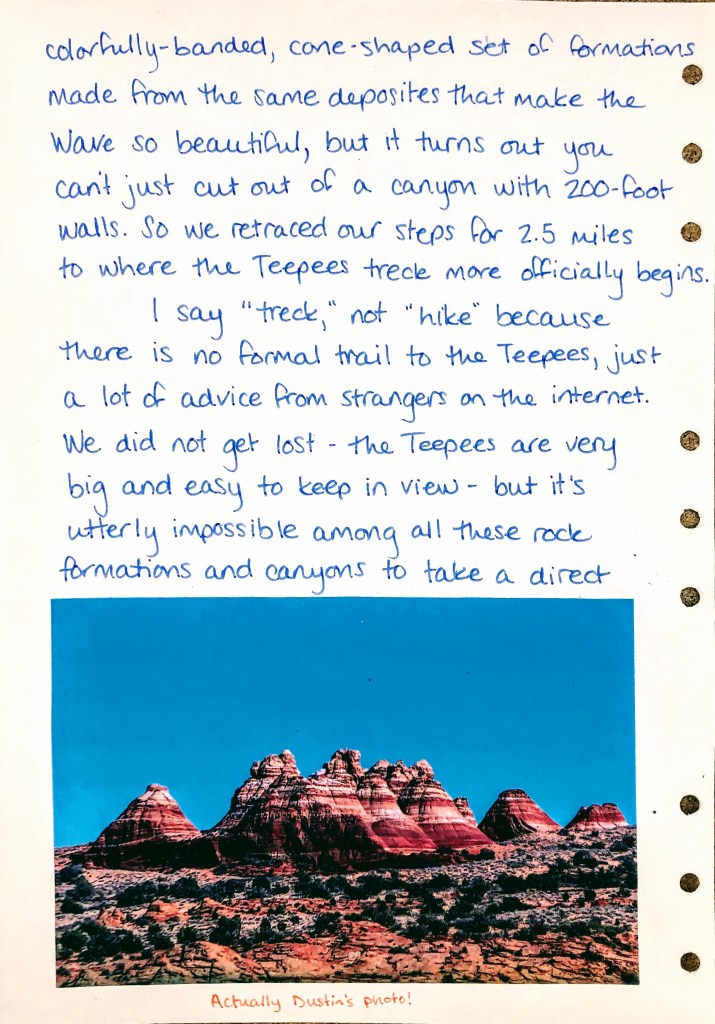 colorfully-banded, cone-shaped set of formations
made from the same deposites that make the
Wave so beautiful, but it turns out you
can't just cut out of a canyon with 200-foot
walls. So we retraced our steps for 2.5 miles
to where the Teepees treck more officially begins.
I say "treck," not "hike" because
there is no formal trail to the Teepees, just
a lot of advice from strangers on the internet.
We did not get lost - the Teepees are very
big and easy to keep in view - but it's
utterly impossible among all these rock
formations and canyons to take a direct
Actually Dustin's photo!